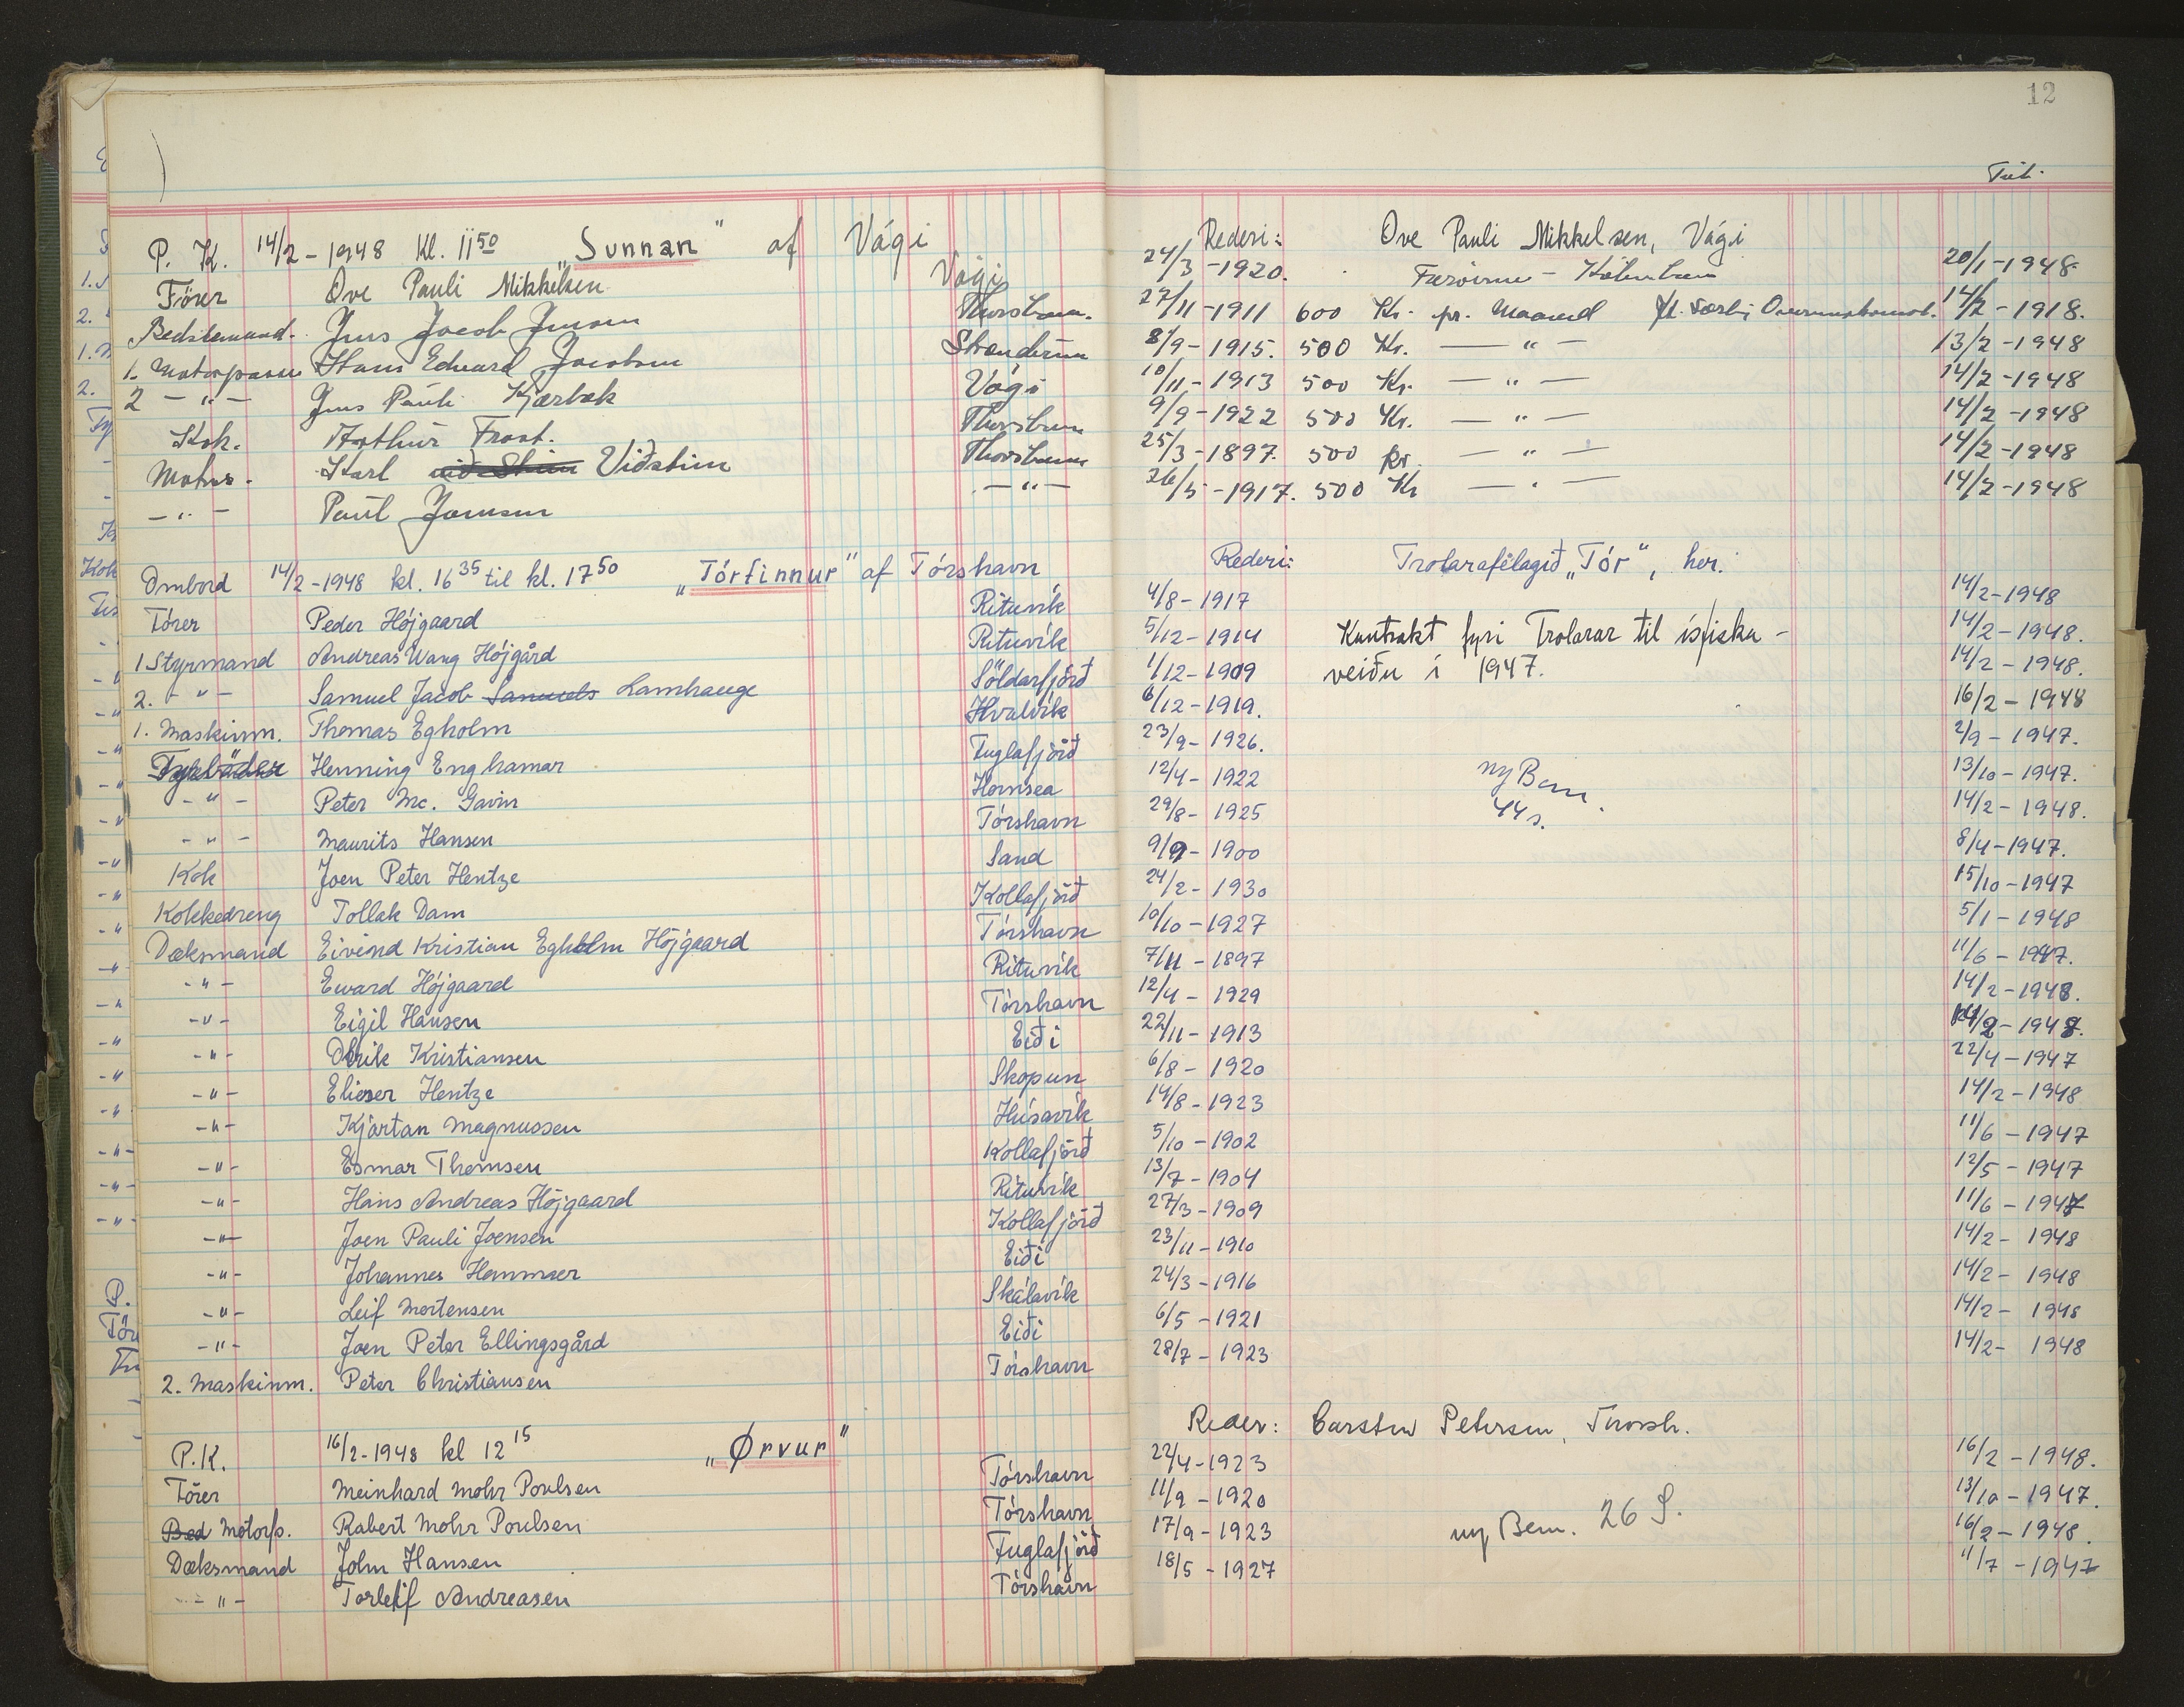 12
Tilt.
P. K. 14/2 - 1948 Kl. 11 50 „Sunnan" af Vági Rederi: Ove Pauli Mikkelsen, Vági
Förer Ove Pauli Mikkelsen Vági 24/3 - 1920. Færöerne - 20/1 - 1948
Bedstemand. Jens Jacob Jensen Thorshavn. 27/11 - 1911 600 Kr. pr. Maaned 14/2 - 1918.
1. Motorpasser Hans Edward Jacobsen Strænderne 8/9 - 1915. 500 Kr. — " — 13/2 - 1948
2 - " - Jens Pauli Kjærbæk Vági 10/11 - 1913 500 Kr. — " — 14/2 - 1948
Kok. Arthur Frost. Thorshavn 9/9 - 1922 500 Kr. — " — 14/2 - 1948
Matros. Karl Viðstein Thorshavn 25/3 - 1897. 500 kr. — " — 14/2 - 1948
- " - Paul Joensen - " - 26/5 - 1917. 500 Kr — " — 14/2 - 1948
Ombord 14/2 - 1948 kl. 16 35 til kl. 17 50 „Tórfinnur" af Tórshavn Rederi: Trolarafélagið „Tór", her.
Förer Peder Höjgaard Rituvík 4/8 - 1917 14/2 - 1948
1 Styrmand Andreas Wang Höjgård Rituvík 5/12 - 1914 Kontrakt fyri Trolarar til ísfiska - 14/2 - 1948.
2. - " - Samuel Jacob Samuels Lamhauge Söldarfjörð 1/12 - 1909 veiðu í 1947. 14/2 - 1948.
1. Maskinm. Thomas Egholm Hvalvík 6/12 - 1919. 16/2 - 1948
Fyrböder Henning Enghamar Fuglafjörð 23/9 - 1926. 2/9 - 1947.
- " - Peter Mc. Gavin Hornsea 12/4 - 1922 ny Bem. 13/10 - 1947.
- " - Maurits Hansen Tórshavn 29/8 - 1925 44 s. 14/2 - 1948.
Kok Joen Peter Hentze Sand 9/9 - 1900 8/4 - 1947.
Kokkedreng Tollak Dam Kollafjörð 24/2 - 1930 15/10 - 1947
Dæksmand Eivind Kristian Egholm Höjgaard Tórshavn 10/10 - 1927 5/1 - 1948
- " - Eward Höjgaard Rituvík 7/11 - 1897 11/6 - 1947.
- " - Eigil Hansen Tórshavn 12/4 - 1929 14/2 - 1948.
- " - Olrik Kristiansen Eiði 22/11 - 1913 14/2 - 1948.
- " - Elieser Hentze Skopun 6/8 - 1920 22/4 - 1947
- " - Kjartan Magnussen Húsavík 14/8 - 1923 14/2 - 1948
- " - Esmar Thomsen Kollafjörð 5/10 - 1902 11/6 - 1947
- " - Hans Andreas Höjgaard Rituvík 13/7 - 1904 12/5 - 1947
- " - Joen Pauli Joensen Kollafjörð 27/3 - 1909 11/6 - 1947
- " - Johannes Hammer Eiði 23/11 - 1910 14/2 - 1948
- " - Leif Mortensen Skálavík 24/3 - 1916 14/2 - 1948
- " - Joen Peter Ellingsgård Eiði 6/5 - 1921 14/2 - 1948
2. Maskinm. Peter Christiansen Tórshavn 28/7 - 1923 14/2 - 1948
P.K. 16/2 - 1948 kl 12 15 „Ørvur" Reder: Carsten Petersen, Thorsh.
Förer Meinhard Mohr Poulsen Tórshavn 22/4 - 1923 16/2 - 1948.
Bed Motorp. Robert Mohr Poulsen Tórshavn 11/9 - 1920 13/10 - 1947.
Dæksmand John Hansen Fuglafjörð 17/9 - 1923 ny Bem. 26 S. 16/2 - 1948.
- " - Torleif Andreasen Tórshavn 18/5 - 1927 11/7 - 1947